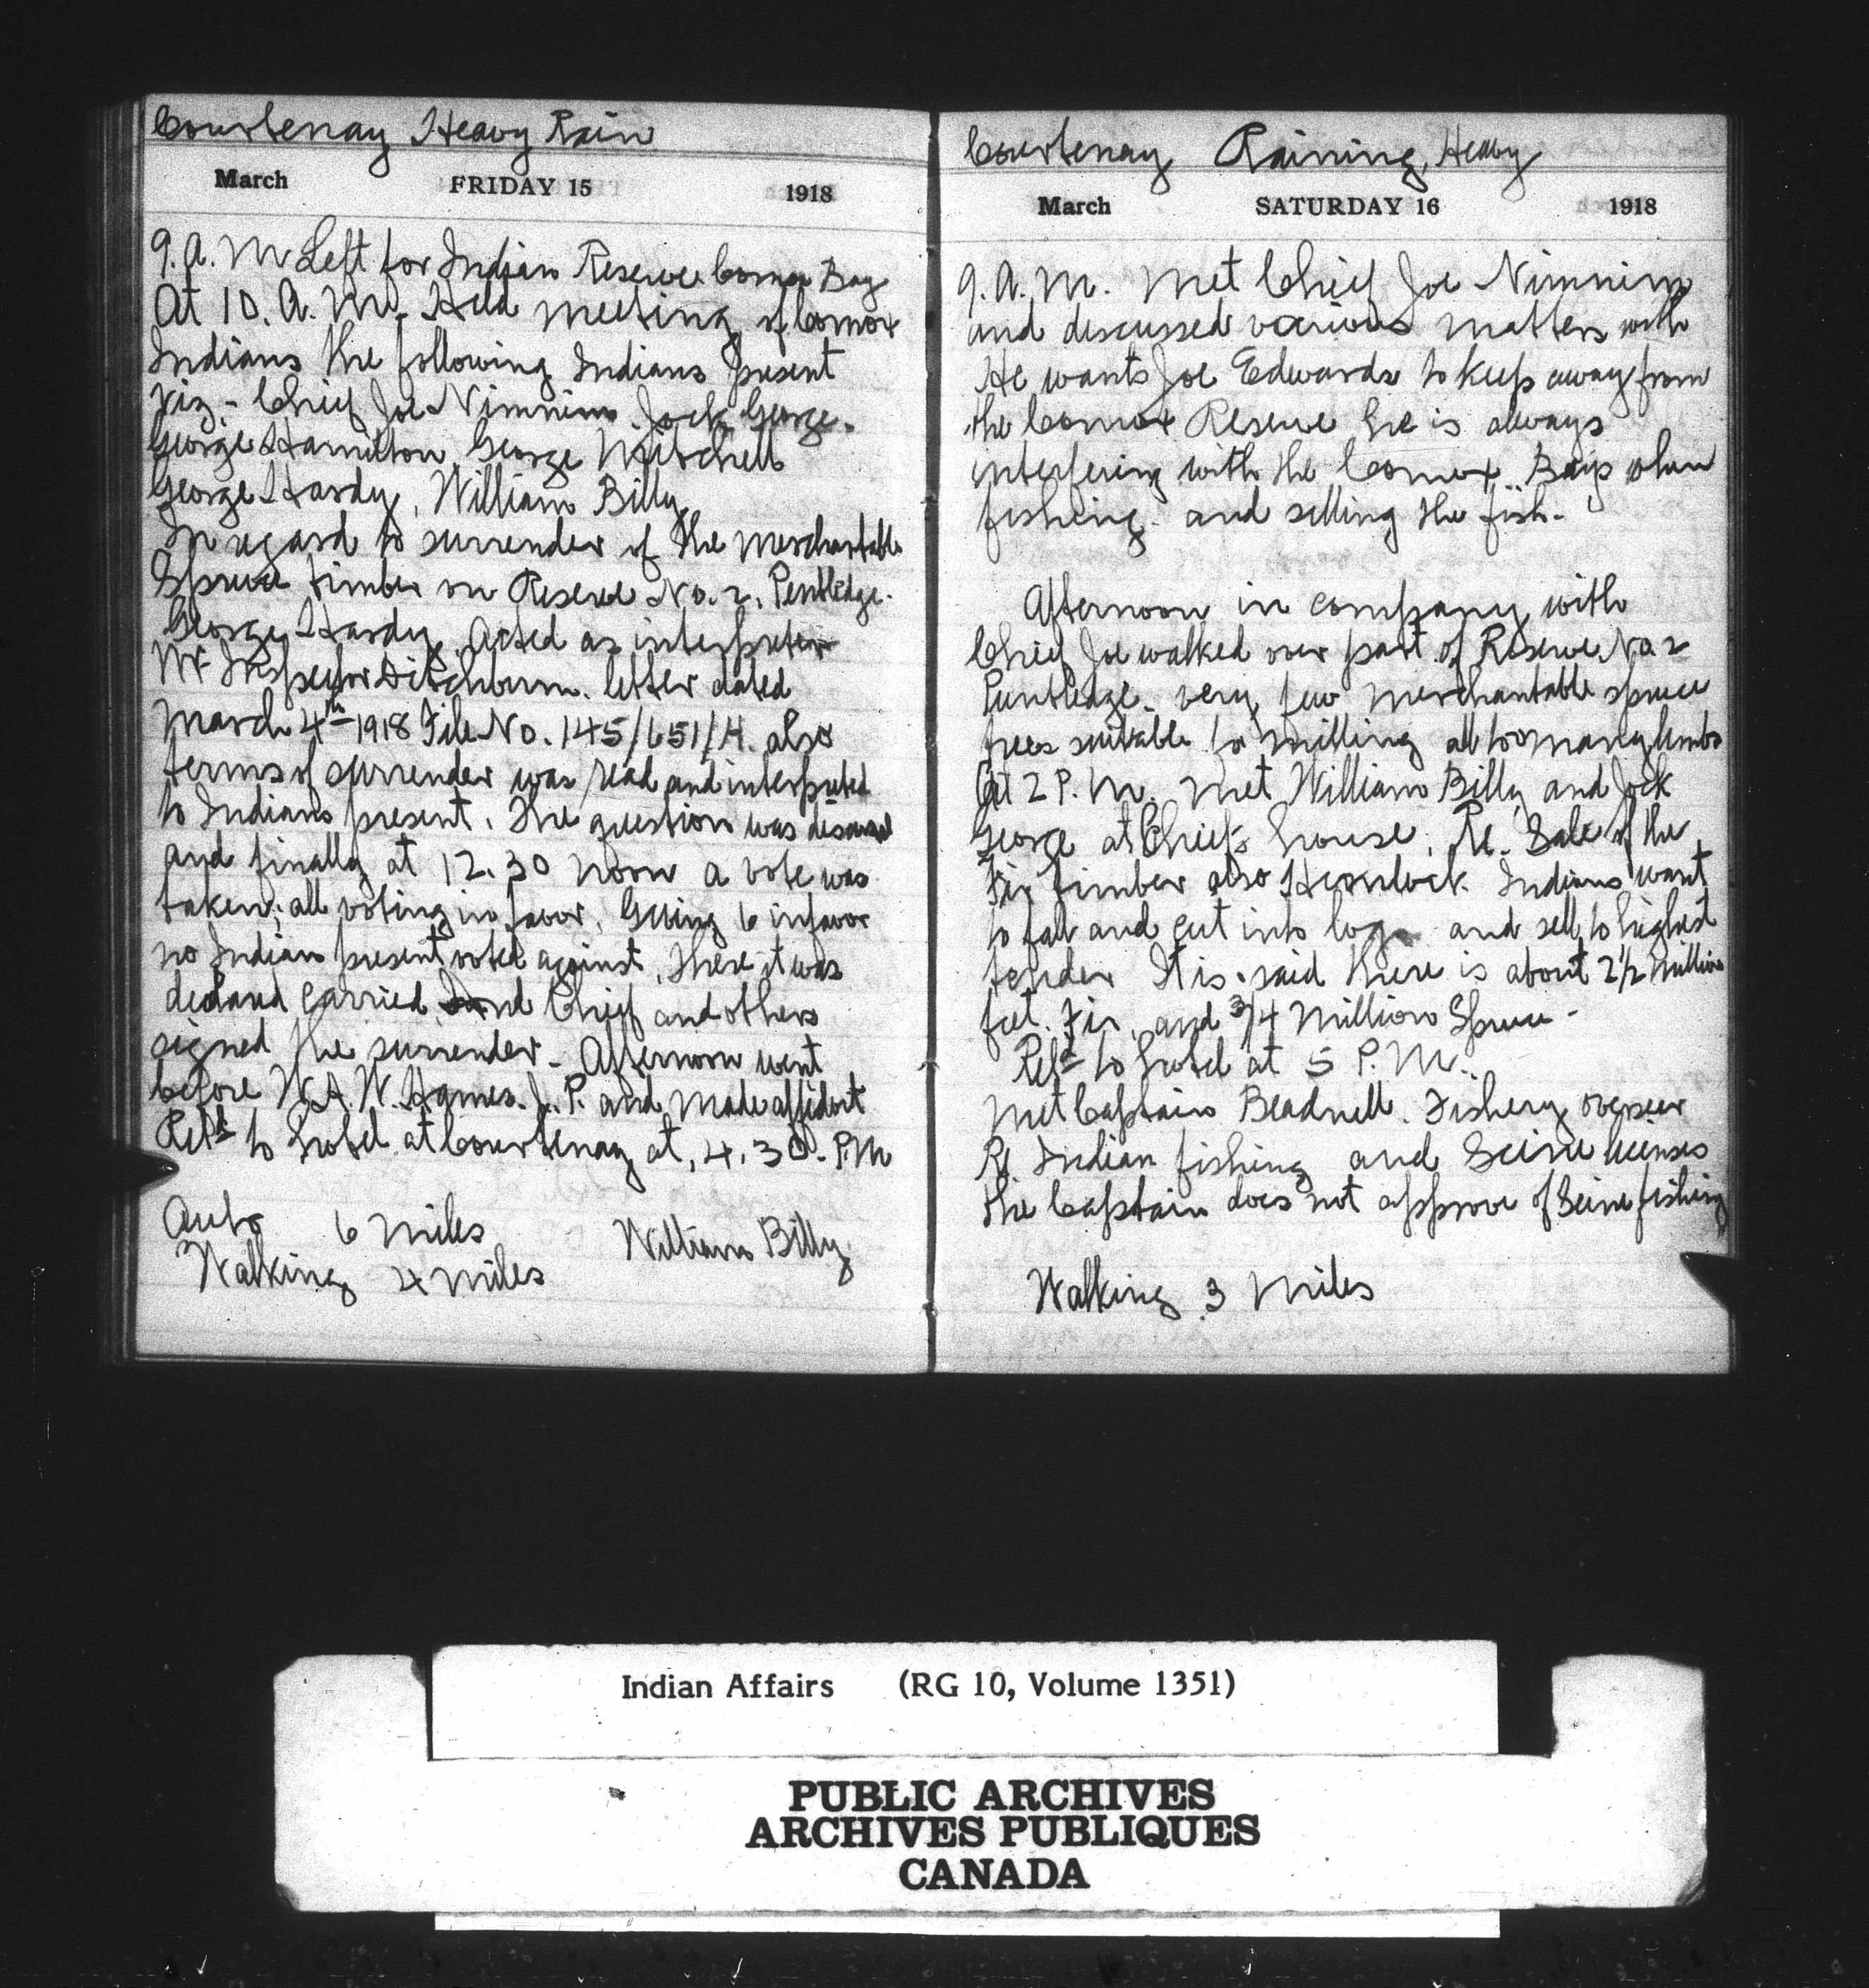 Courtenay Heavy Rain
March FRIDAY 15 1918
9. A. M Left for Indian Reserve Comox Bay
At 10. A. M. Held meeting of Comox
Indians the following Indians present
Viz - Chief Joe Nimnim Jock George.
George Hamilton George Mitchell
George Hardy, William Billy
In regard to surrender of the merchantable
Spruce timber on Reserve No. 2. Pentledge.
George Hardy, Acted as interpreter
Mr Inspector Ditchburn. letter dated
March 4th 1918 File No. 145/651/H. also
terms of surrender was read and interpreted
to Indians present. The question was discussed
and finally at 12.30 noon a vote was
taken; all voting in favor. Giving 6 in favor
no Indian present voted against, these it was
declared carried, and Chief and others
signed the surrender - Afternoon went
before W. A. W. Hames. J. P. and made affidavit
Retd to hotel at Courtenay at, 4.30. P.M
Auto 6 miles William Billy
Walking 4 miles
Courtenay Raining, Heavy
March SATURDAY 16 1918
9. A. M. Met Chief Joe Nimnim
and discussed various matters with
He wants Joe Edwards to keep away from
the Comox Reserve he is always
interfering with the Comox Boys when
fishing. and selling the fish.
Afternoon in company with
Chief Joe walked over part of Reserve No 2
Puntledge. very few merchantable spruce
trees suitable for milling all too many limbs
At 2 P. M. Met William Billy and Jock
George at Chiefs house. Re. Sale of the
Fir timber also Hemlock Indians want
to fall and cut into logs and sell to highest
tender It is said there is about 2 1/2 million
feet. Fir, and 3/4 Million Spruce -
Retd to hotel at 5 P. M.
Met Captain Beadnell. Fishery overseer
Re Indian fishing and Seine licenses
the Captain does not approve of Seine fishing
Walking 3 Miles
Indian Affairs (RG 10, Volume 1351)
PUBLIC ARCHIVES
ARCHIVES PUBLIQUES
CANADA